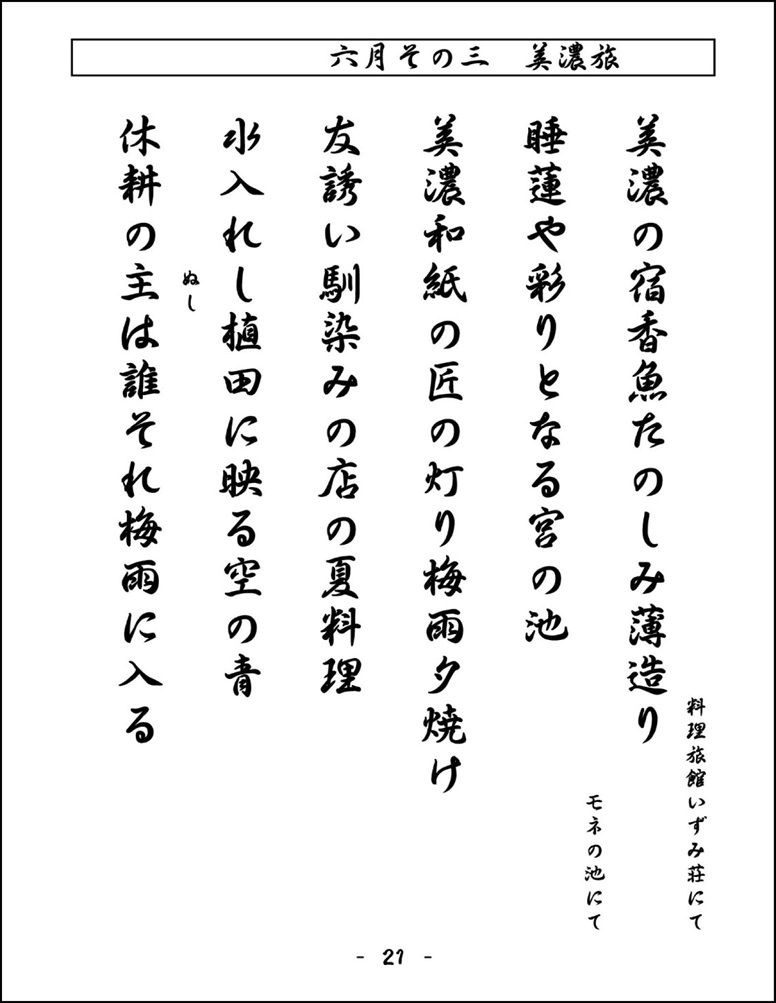 六月その三　美濃旅
料理旅館いずみ荘にて
美濃の宿香魚たのしみ薄造り
モネの池にて
睡蓮や彩りとなる宮の池
美濃和紙の匠の灯り梅雨夕焼け
友誘い馴染みの店の夏料理
水入れし植田に映る空の青
ぬし
休耕の主は誰それ梅雨に入る
- 21 -